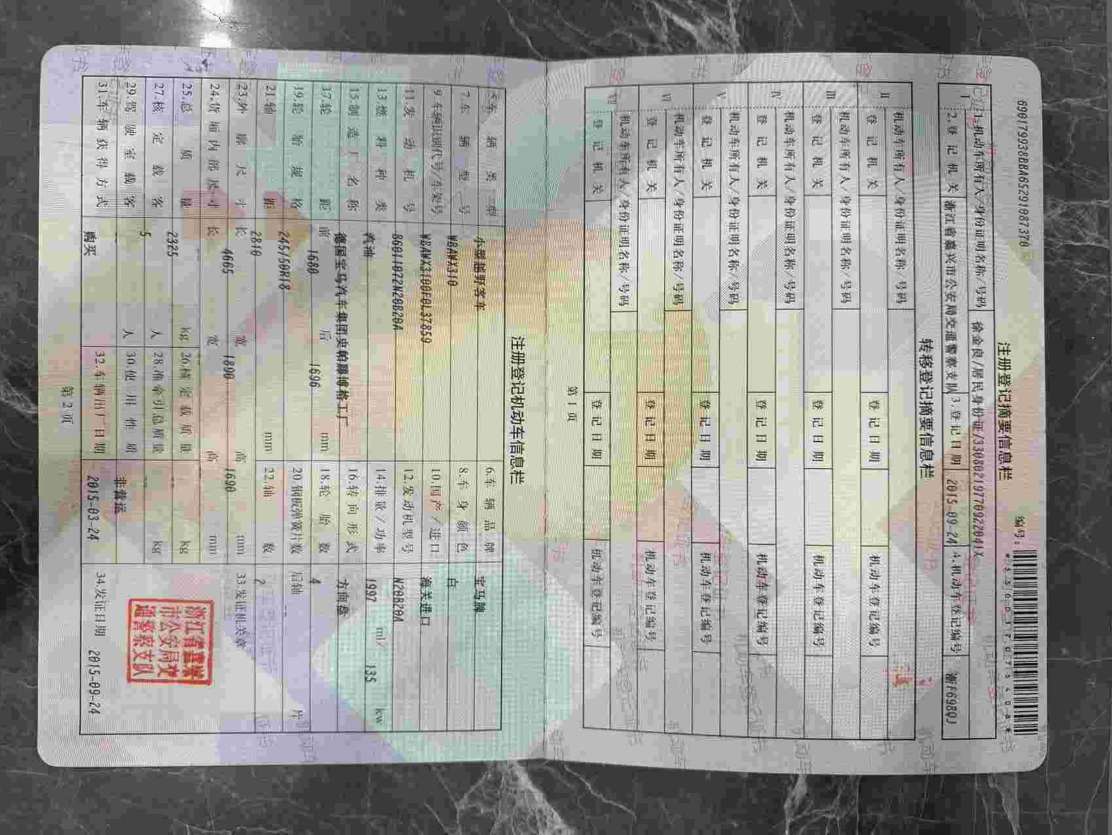 注册登记摘要信息栏
编号:
690179938B8A65291087370
I
1.机动车所有人/身份证明名称/号码
徐金良/居民身份证/330802197709220041X
2.登记机关
浙江省嘉兴市公安局交通警察支队
3.登记日期
2015-09-24
4.机动车登记编号
浙F698QJ
转移登记摘要信息栏
II
机动车所有人/身份证明名称/号码
登记机关
登记日期
机动车登记编号
III
机动车所有人/身份证明名称/号码
登记机关
登记日期
机动车登记编号
IV
机动车所有人/身份证明名称/号码
登记机关
登记日期
机动车登记编号
V
机动车所有人/身份证明名称/号码
登记机关
登记日期
机动车登记编号
VI
机动车所有人/身份证明名称/号码
登记机关
登记日期
机动车登记编号
VII
机动车所有人/身份证明名称/号码
登记机关
登记日期
机动车登记编号
第1页
注册登记机动车信息栏
5.车辆类型 小型越野客车 6.车辆品牌 宝马牌
7.车辆型号 WBAWX310 8.车身颜色 白
9.车辆识别代号/车架号 WBAWX3100F0L37859 10.国产/进口 海关进口
11.发动机号 B6011072N20B20A 12.发动机型号 N20B20A
13.燃料种类 汽油 14.排量/功率 1997 ml/ 135 kw
15.制造厂名称 德国宝马汽车集团史帕藤博格工厂 16.转向形式 方向盘
17.轮距 前 1680 后 1696 mm 18.轮胎数 4
19.轮胎规格 245/50R18 20.钢板弹簧片数 后轴 片
21.轴距 2810 mm 22.轴数 2
23.外廓尺寸 长 4665 宽 1890 高 1690 mm 33.发证机关章
24.货厢内部尺寸 长 宽 高 mm
25.总质量 2325 kg 26.核定载质量 kg
27.核定载客 5 人 28.准牵引总质量 kg
29.驾驶室载客 人 30.使用性质 非营运
31.车辆获得方式 购买 32.车辆出厂日期 2015-03-24 34.发证日期 2015-09-24
浙江省嘉兴
市公安局交
通警察支队
第2页